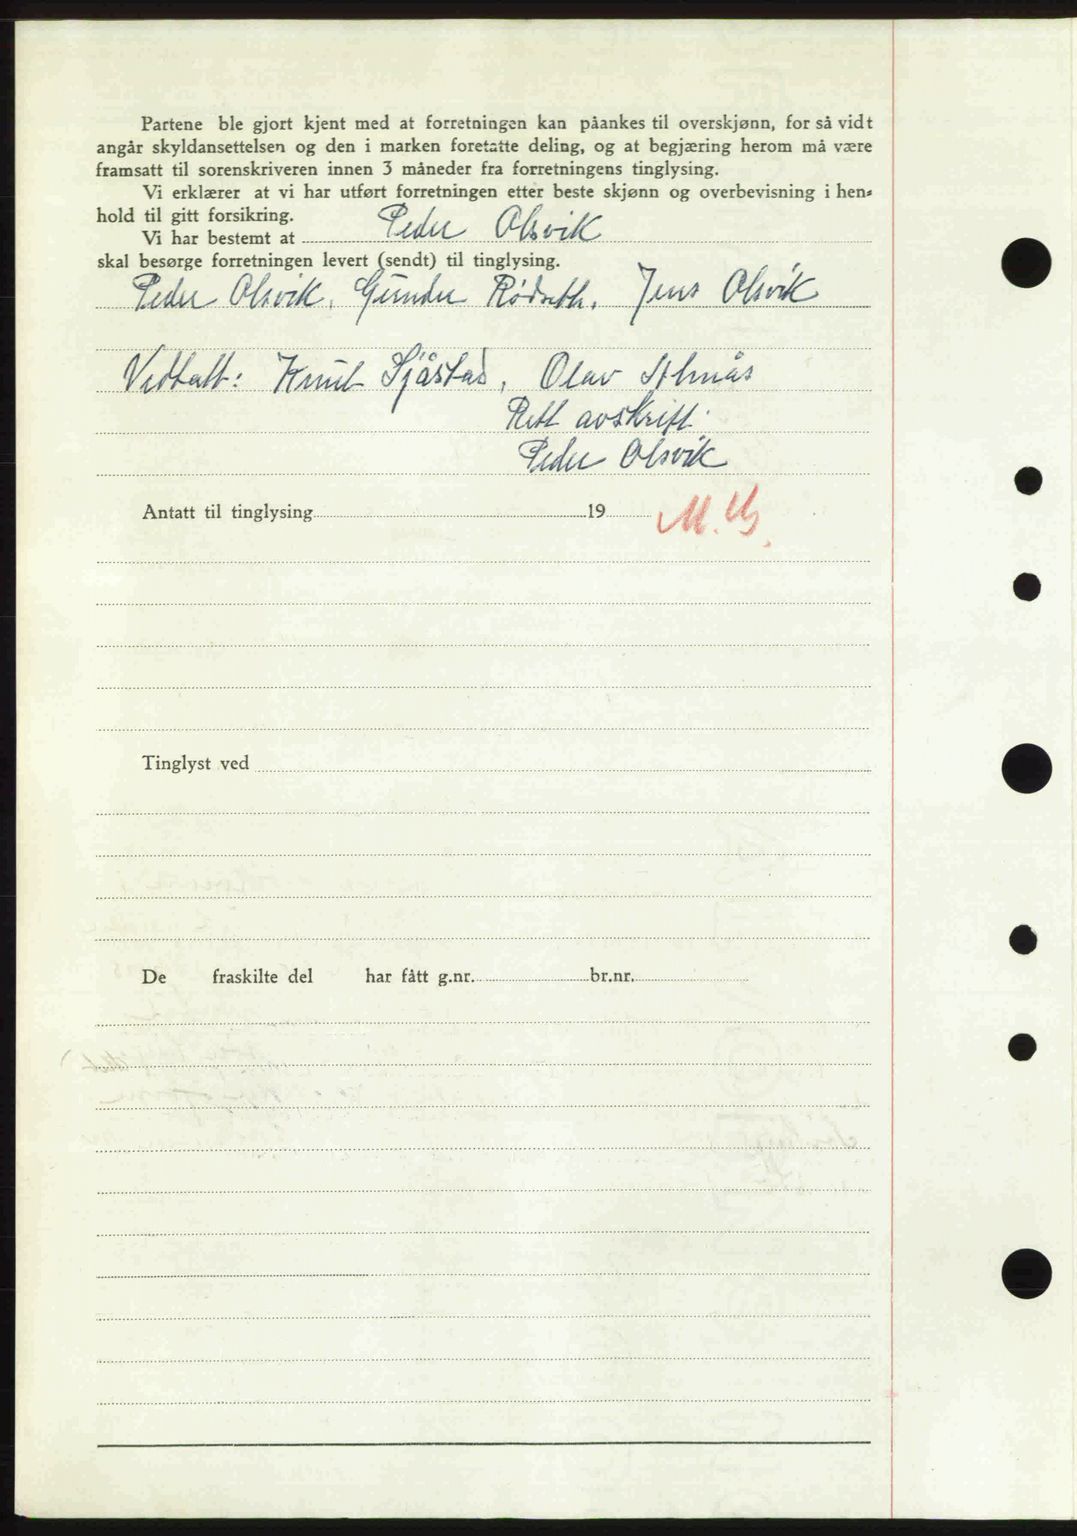 Partene ble gjort kjent med at forretningen kan påankes til overskjønn, for så vidt
angår skyldansettelsen og den i marken foretatte deling, og at begjæring herom må være
framsatt til sorenskriveren innen 3 måneder fra forretningens tinglysing.
Vi erklærer at vi har utført forretningen etter beste skjønn og overbevisning i hen-
hold til gitt forsikring.
Vi har bestemt at Peder Olsvik
skal besørge forretningen levert (sendt) til tinglysing.
Peder Olsvik, Gunder Rødseth. Jens Olsvik
Vedtatt: Knut Sjåstad, Olav Almås
Rett avskrift.
Peder Olsvik
Antatt til tinglysing 19
Tinglyst ved
De fraskilte del har fått g.nr. br.nr.